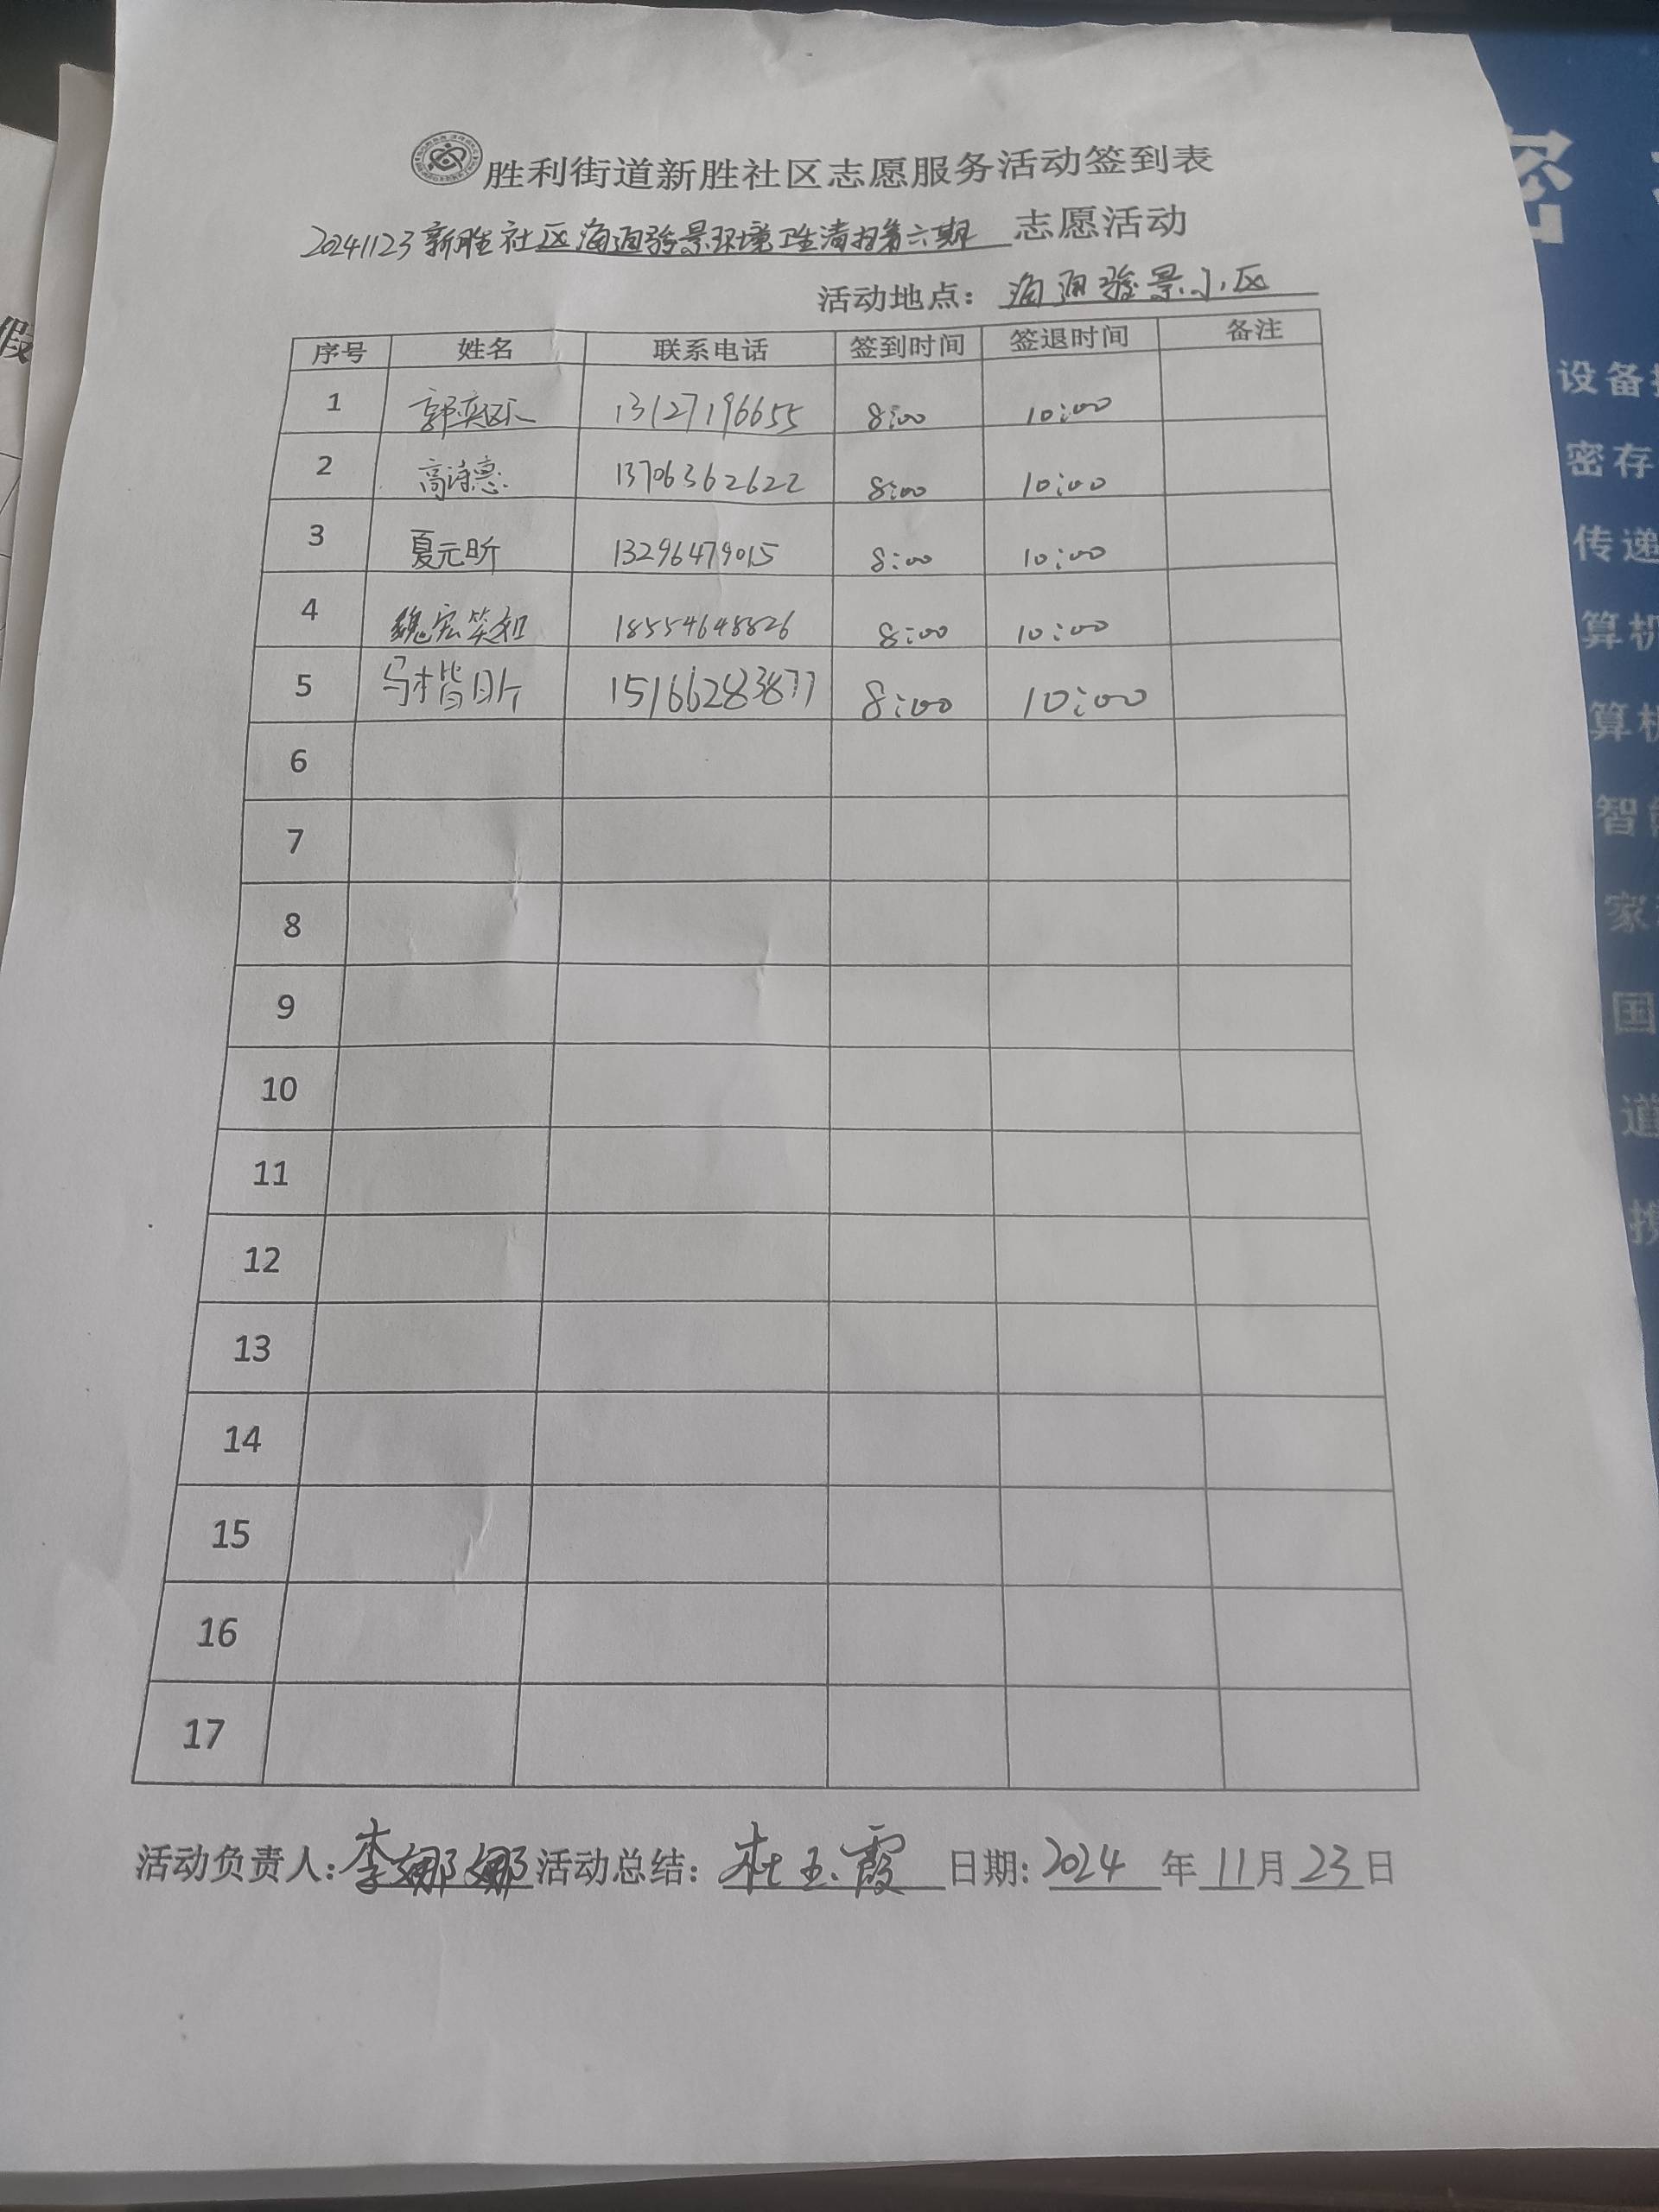 胜利街道新胜社区志愿服务活动签到表
20241123新胜社区海通骏景环境卫生清扫第六期 志愿活动
活动地点： 海通骏景小区
序号 姓名 联系电话 签到时间 签退时间 备注
1 郭 13127196655 8:00 10:00
2 高诗惠 13706362622 8:00 10:00
3 夏元昕 13296479015 8:00 10:00
4 魏宏 18554648826 8:00 10:00
5 马楷昕 15166283877 8:00 10:00
6
7
8
9
10
11
12
13
14
15
16
17
活动负责人：李娜娜 活动总结： 杜玉霞 日期: 2024 年 11 月 23 日
假
密
设备
密存
传递
算机
算机
智能
家
国
道
携